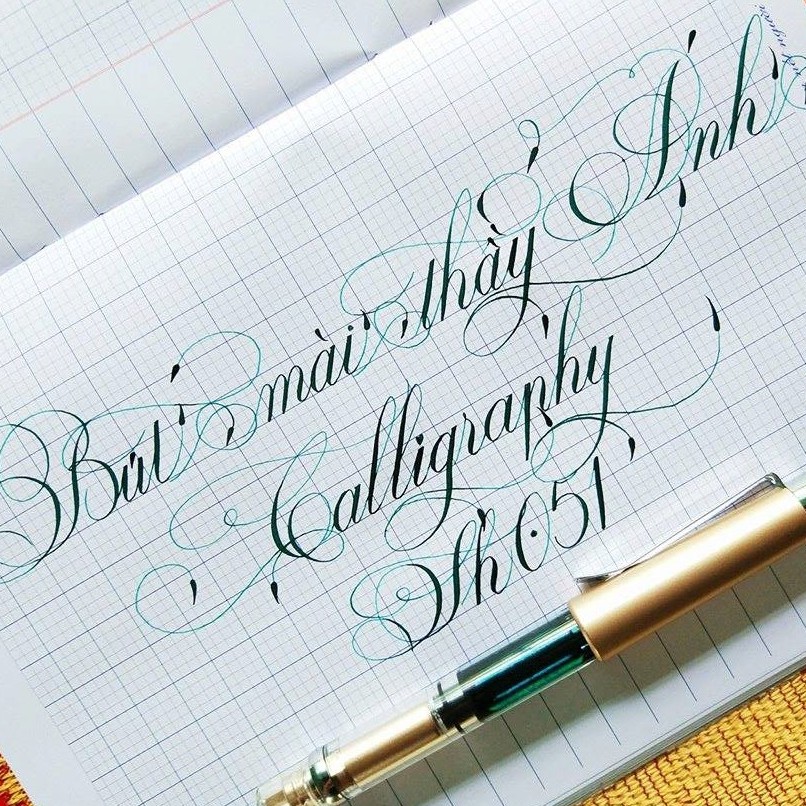 Bút mài thày Ánh
Calligraphy
Sh 051